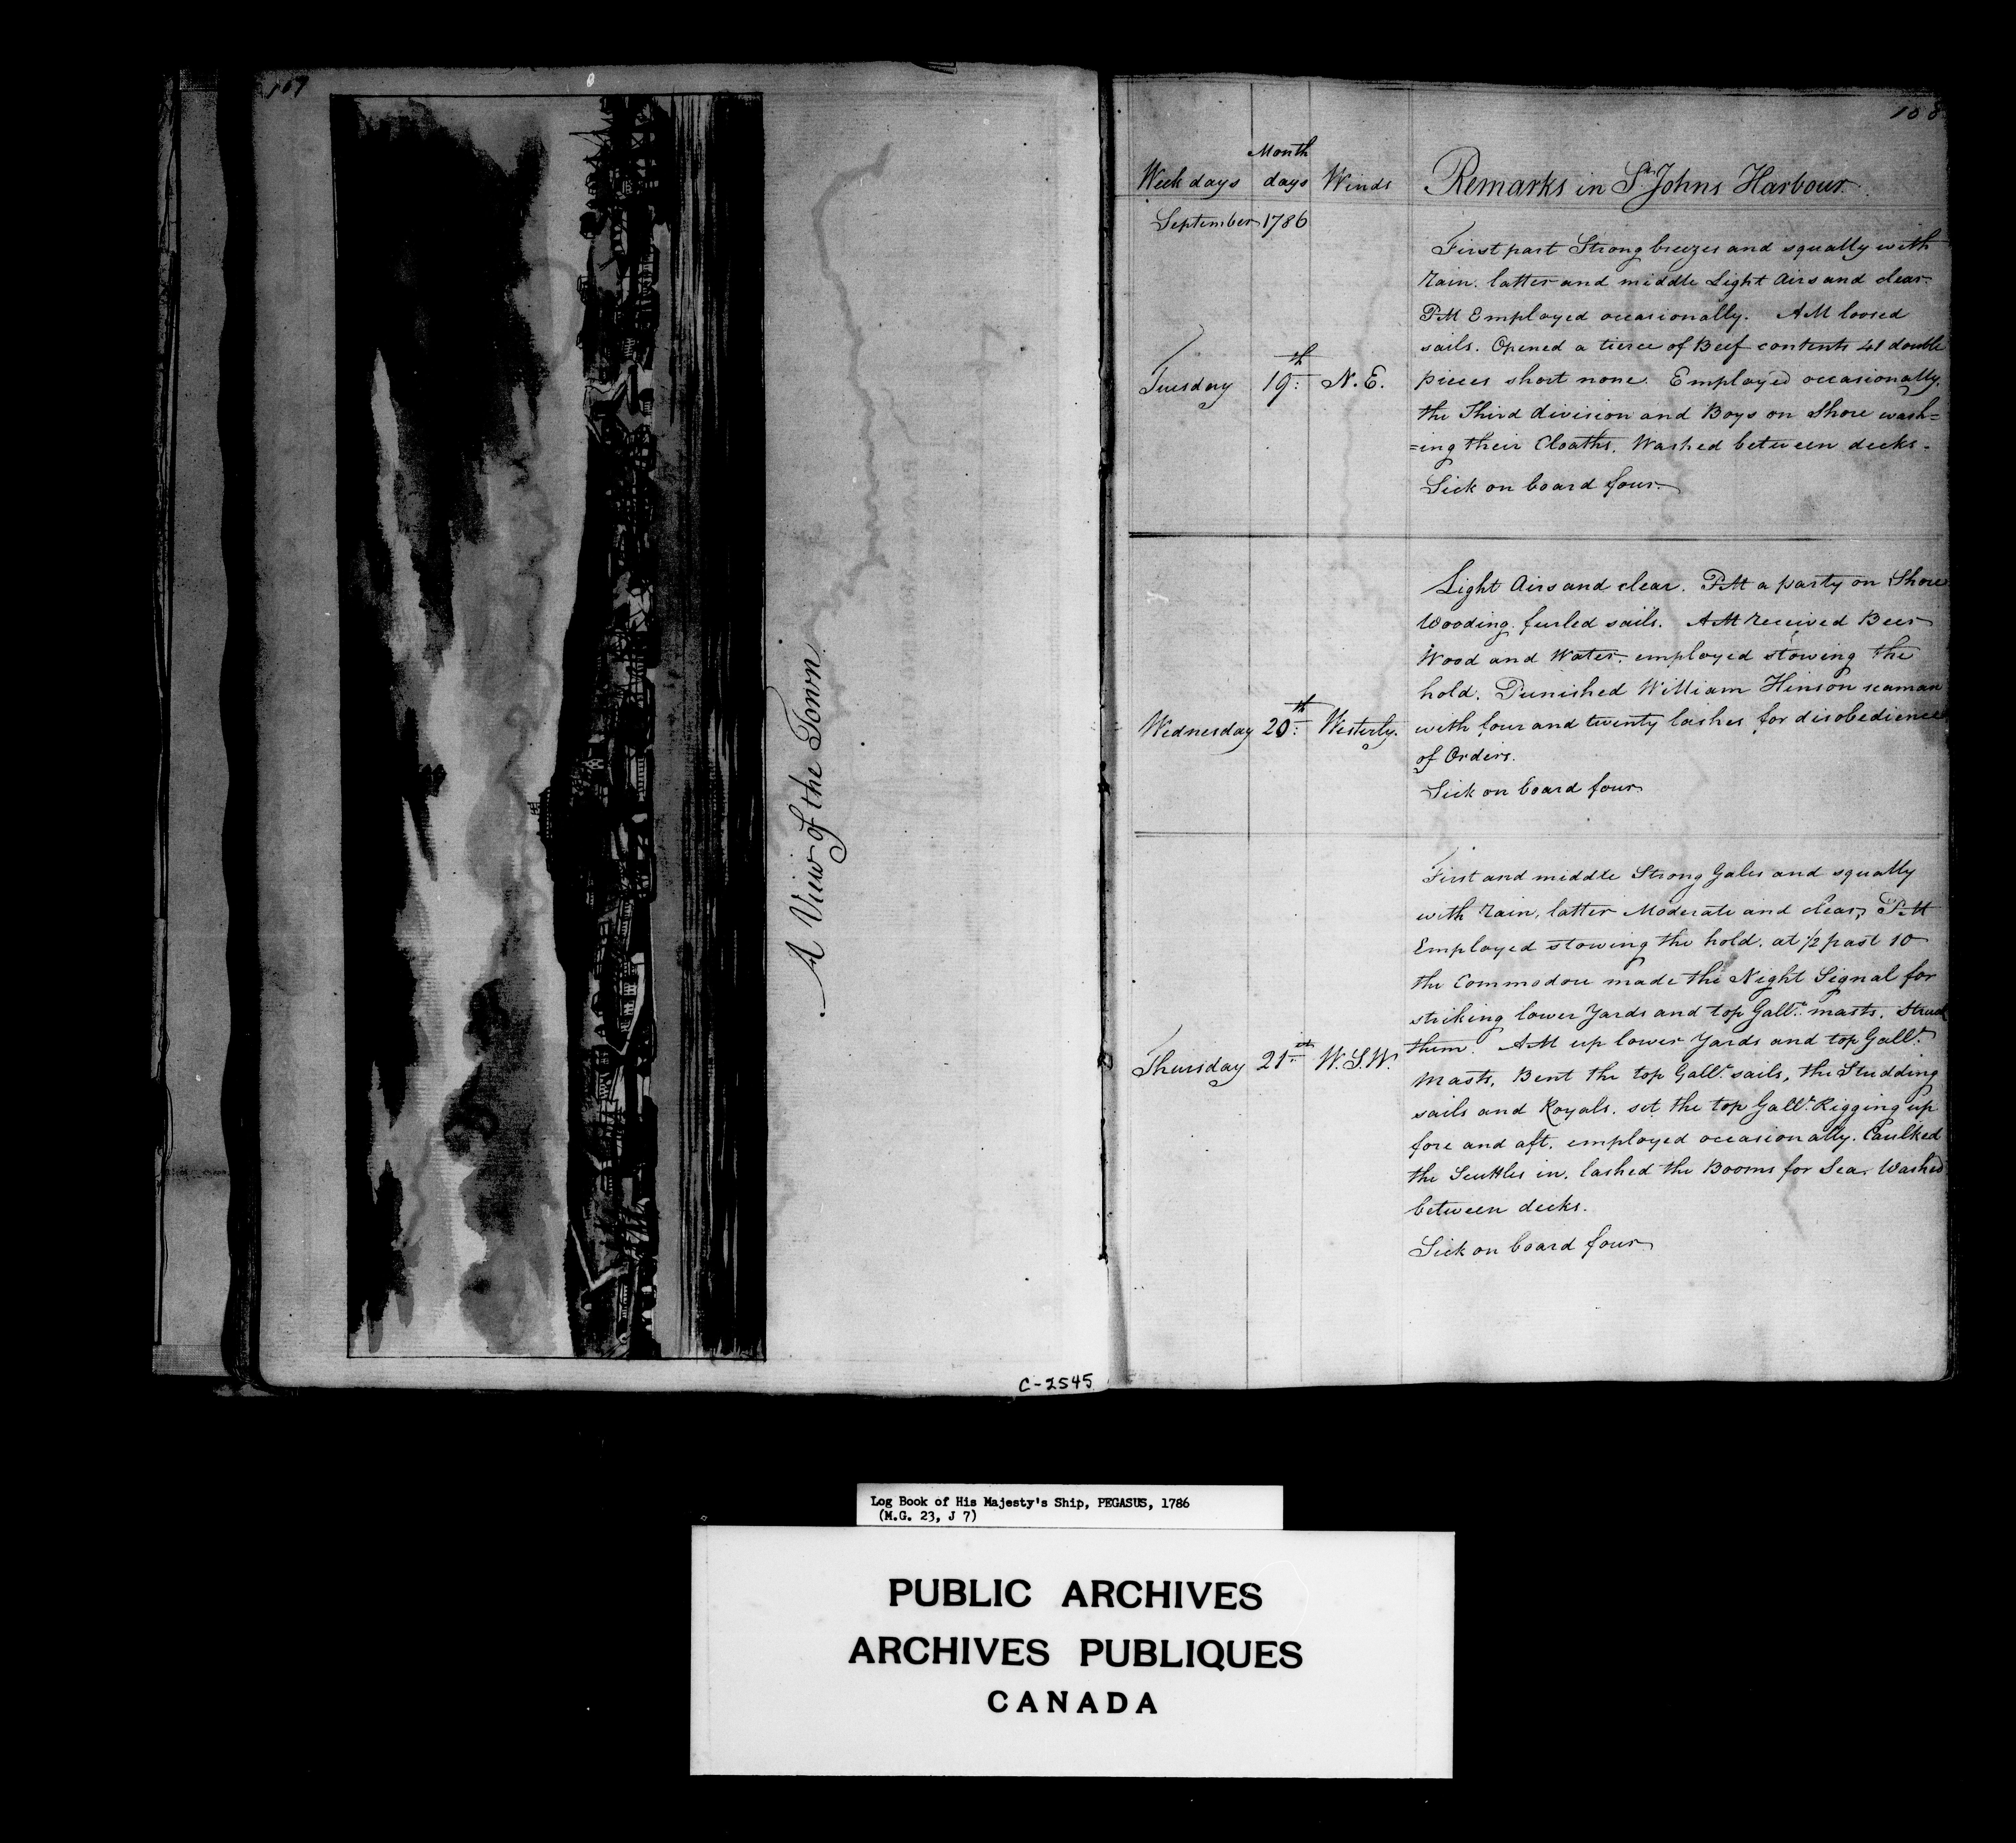 A View of the Town
C-2545
108
Month
Week days days Winds Remarks in St. Johns Harbour
September 1786
First part Strong breezes and squally with
rain. latter and middle Light Airs and clear.
PM Employed occasionally. AM loosed
sails. Opened a tierce of Beef contents 41 double
Tuesday 19th N.E. pieces short none. Employed occasionally.
the Third division and Boys on Shore wash=
=ing their Cloaths. Washed between decks.
Sick on board four.
Light Airs and clear. PM a party on Shore
Wooding. furled sails. AM received Beer
Wood and Water. employed stowing the
hold. Punished William Hinson seaman
Wednesday 20th Westerly. with four and twenty lashes for disobedience
of Orders.
Sick on board four
First and middle Strong Gales and squally
with rain, latter Moderate and clear, PM
Employed stowing the hold. at 1/2 past 10
the Commodore made the Night Signal for
striking lower Yards and top Gallt. masts. Struck
Thursday 21st W.S.W. them. AM up lower Yards and top Gallt.
Masts, Bent the top Gallt. sails, the Studding
sails and Royals. set the top Gallt. Rigging up
fore and aft. employed occasionally. Caulked
the Scuttles in. lashed the Booms for Sea. Washed
between decks.
Sick on board four
Log Book of His Majesty's Ship, PEGASUS, 1786
(M.G. 23, J 7)
PUBLIC ARCHIVES
ARCHIVES PUBLIQUES
CANADA